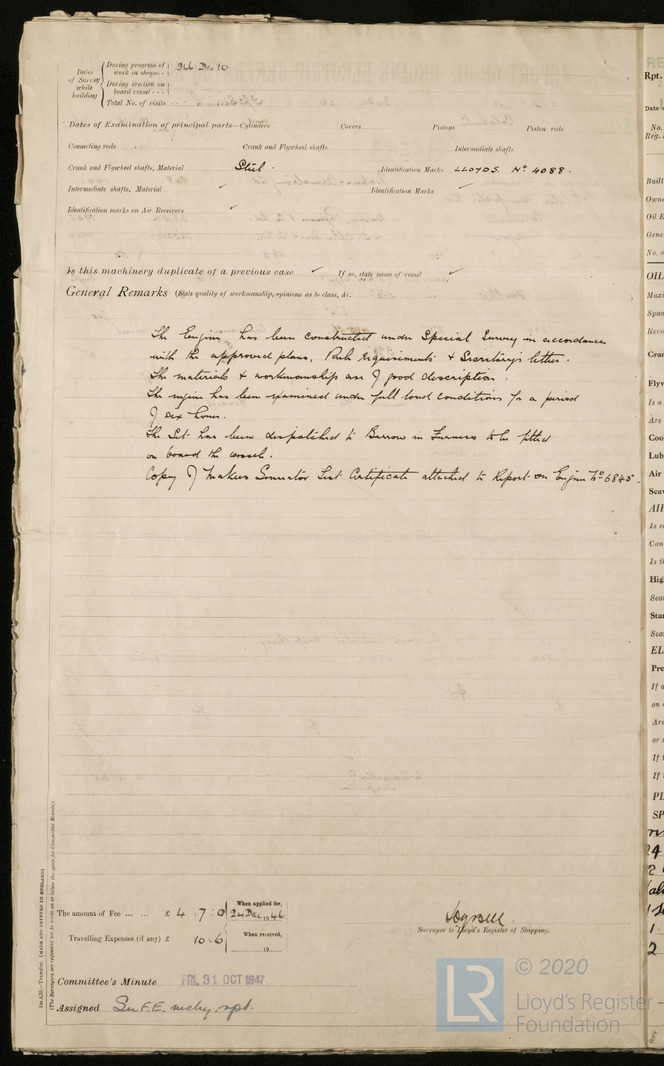 Dates of Survey while building
During progress of work in shops - -
During erection on board vessel - - -
Total No. of visits
Dates of Examination of principal parts—Cylinders Covers Pistons Piston rods
Connecting rods Crank and Flywheel shafts Intermediate shafts
Crank and Flywheel shafts, Material Steel Identification Marks LLOYDS. No 4088.
Intermediate shafts, Material ✓ Identification Marks ✓
Identification marks on Air Receivers ✓
Is this machinery duplicate of a previous case ✓ If so, state name of vessel ✓
General Remarks (State quality of workmanship, opinions as to class, &c.
The Engine has been constructed under Special Survey in accordance
with the approved plans, Rule requirements & Secretary's letter.
The materials & workmanship are of good description.
The engine has been examined under full load conditions for a period
of six hours.
The Set has been despatched to Barrow in Furness to be fitted
on board the vessel.
Copy of Makers Generator Test Certificate attached to Report on Engine No 6845.
The amount of Fee ... ... £ 4 : 7 : 0 When applied for, 24 Dec 1946
Travelling Expenses (if any) £ 10 : 6 When received, 19
Surveyor to Lloyd's Register of Shipping.
Committee's Minute FRI. 31 OCT 1947
Assigned See F.E. mchy. rpt.
(MADE AND PRINTED IN ENGLAND)
(The Surveyors are requested not to write on or below the space for Committee Minute.)
© 2020
LR
Lloyd's Register
Foundation